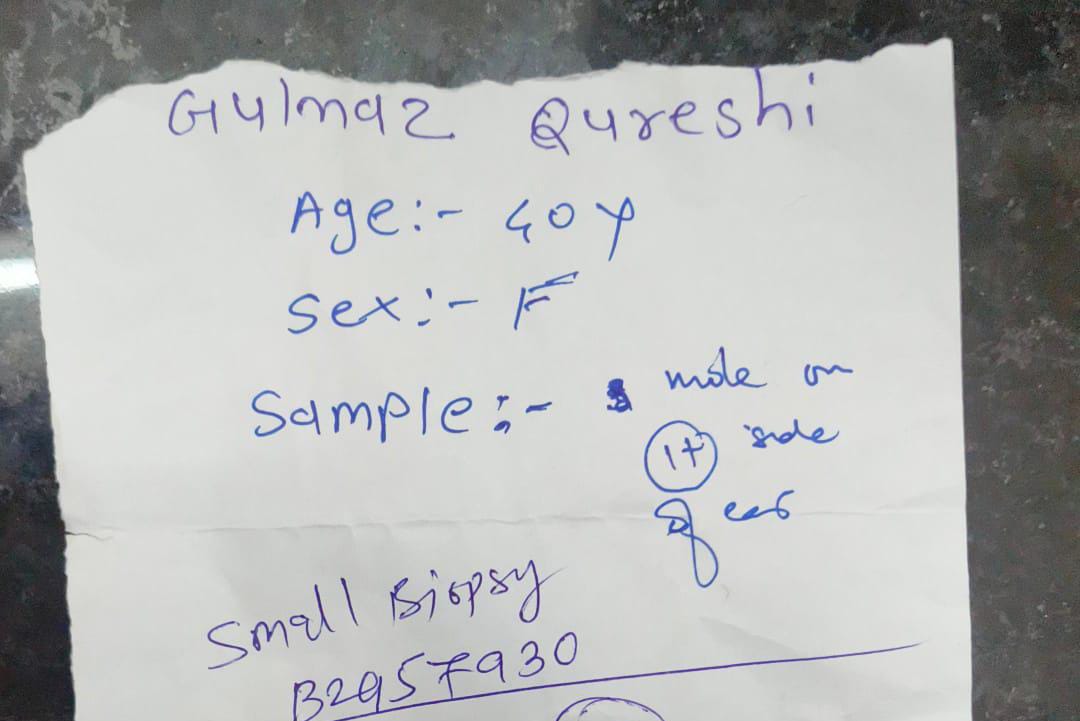 Gulnaz Qureshi
Age:- 40y
Sex:- F
Sample:- mole on
lt side
of ear
Small Biopsy
B2957930